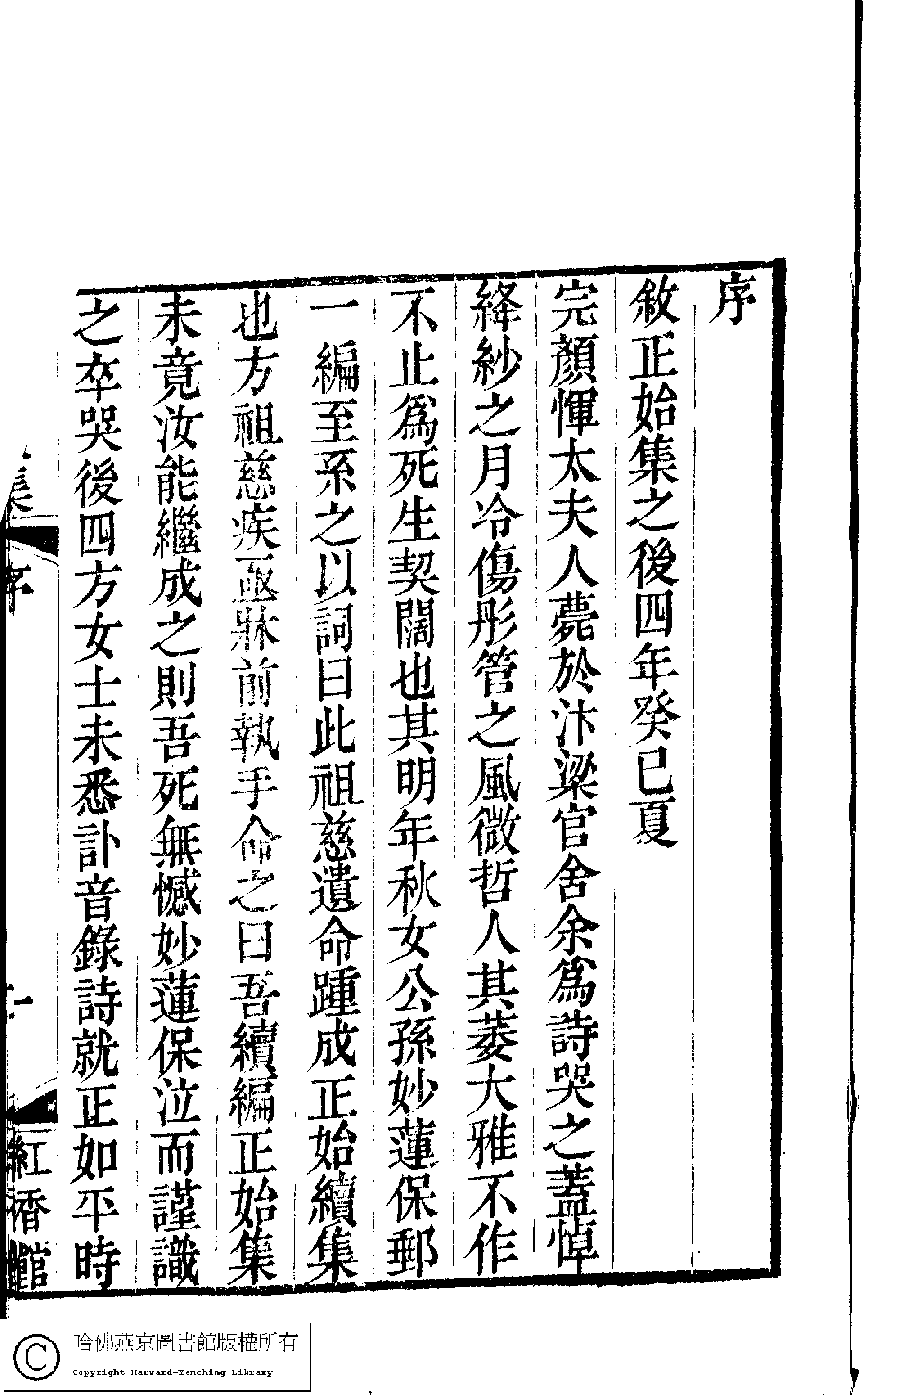 序
敘正始集之後四年癸巳夏
完顏惲太夫人薨於汴梁官舍余爲詩哭之蓋悼
絳紗之月冷傷彤管之風微哲人其萎大雅不作
不止爲死生契闊也其明年秋女公孫妙蓮保郵
一編至系之以詞曰此祖慈遺命踵成正始續集
也方祖慈疾亟牀前執手命之曰吾續編正始集
未竟汝能繼成之則吾死無憾妙蓮保泣而謹識
之卒哭後四方女士未悉訃音錄詩就正如平時
集
序
紅香館
哈佛燕京圖書館版權所有
Copyright Harvard-Yenching Library